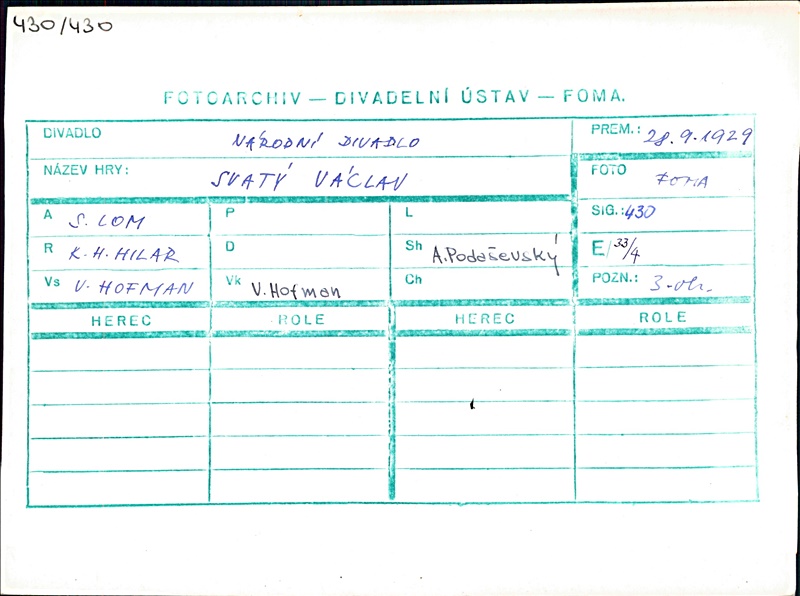 430/430
FOTOARCHIV — DIVADELNÍ ÚSTAV — FOMA.
DIVADLO NÁRODNÍ DIVADLO PREM.: 28.9.1929
NÁZEV HRY: SVATÝ VÁCLAV FOTO FOMA
A S. LOM P L SIG.: 430
R K. H. HILAR D Sh A. Podaševský E/33/4
Vs V. HOFMAN Vk V. Hofman Ch POZN.: 3-
HEREC ROLE HEREC ROLE